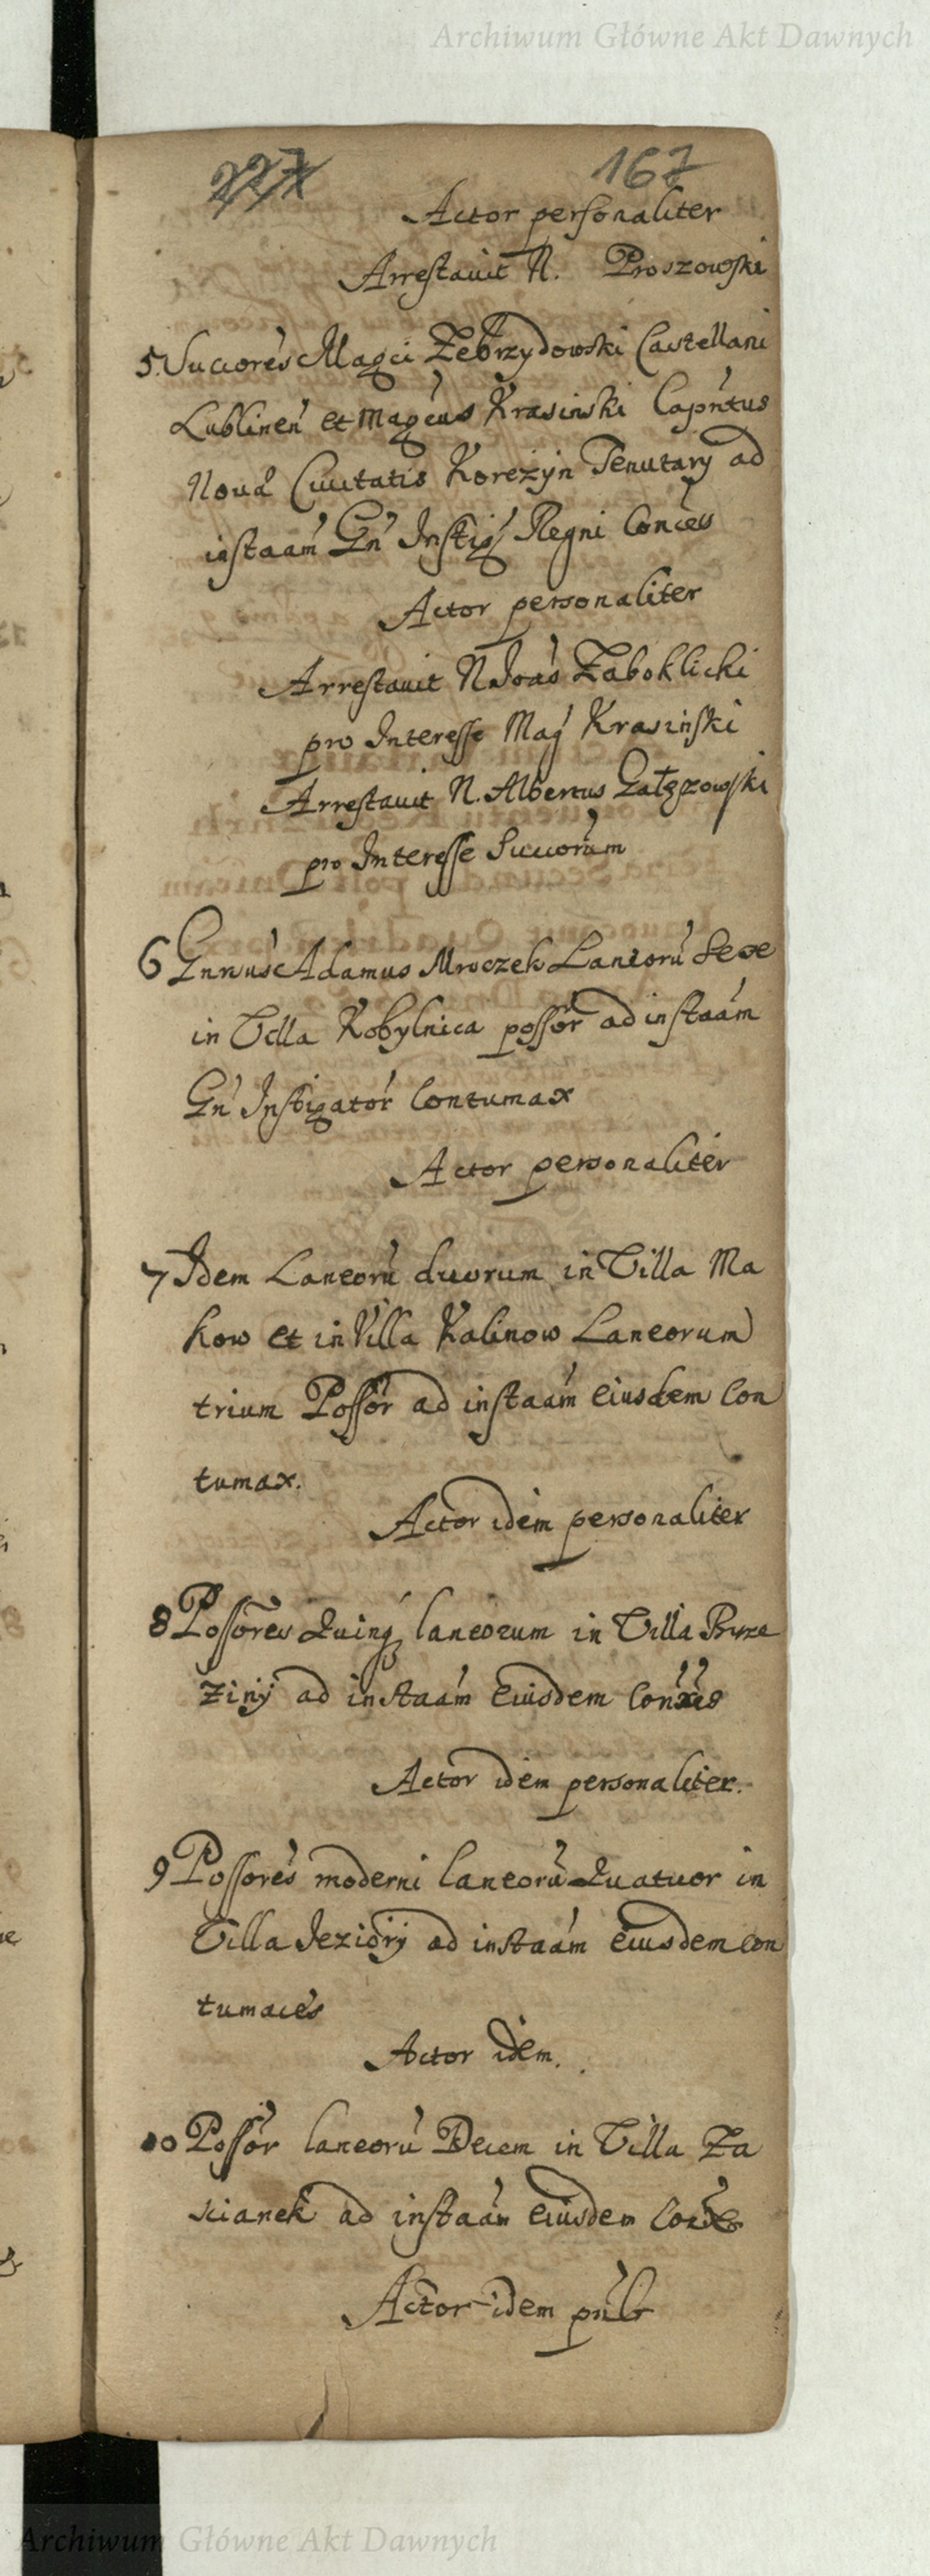 Archiwum Główne Akt Dawnych
227 167
Actor personaliter
Arrestauit N. Proszowski
5. Succorés Magci Zebrzydowski Castellani
Lublineń et Magćus Krasinski Capńtus
Noua Ciuitatis Korczyn Tenutarÿ ad
instaám Gń Instig Regni Conćes
Actor personaliter
Arrestauit N Joás Zaboklicki
pro Interesse Mag Krasiński
Arrestauit N. Albertus Gałęzowski
pro Interesse Succorúm
6 Gnnús Adamus Mroczek Laneorú Sexe
in Villa Kobylnica possór ad instaám
Gń Instigatór Contumax
Actor personaliter
7 Idem Laneorú duorum in Villa Ma
kow et in Villa Kalinow Laneorum
trium Possór ad instaám eiusdem Con
tumax.
Actor idem personaliter
8 Possóres Quinq laneorum in Villa
ziny ad instaám Eiusdem
Actor idem personaliter.
9 Possorés moderni laneorú Quatuor in
Villa Jeziory ad instaám eiusdem con
tumaces
Actor idem.
10 Possór laneorú Decem in Villa Za
scianek ad instaám eiusdem
Actor idem pńlr
Archiwum Główne Akt Dawnych